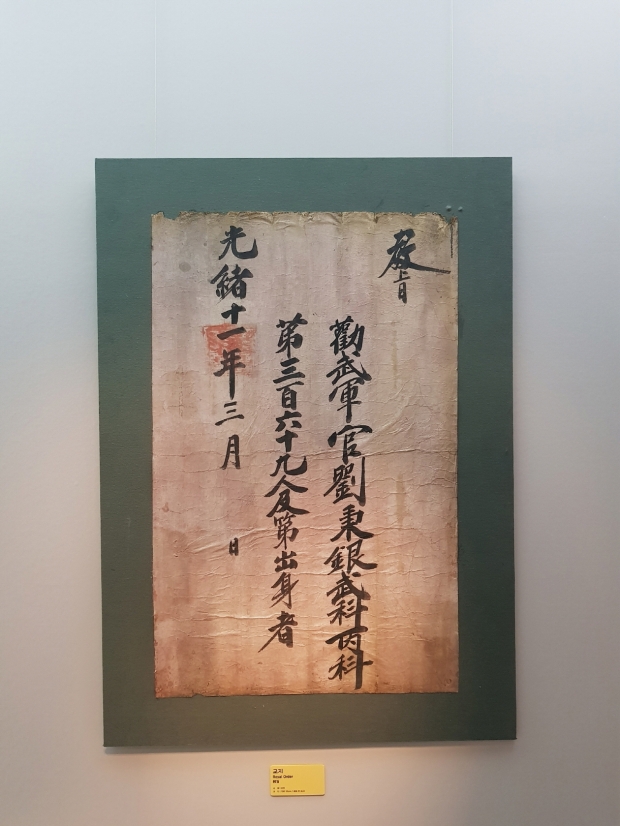 敎旨
勸武軍官劉秉銀武科丙科
第三百六十九人及第出身者
光緖十一年三月 日
교지
Royal Order